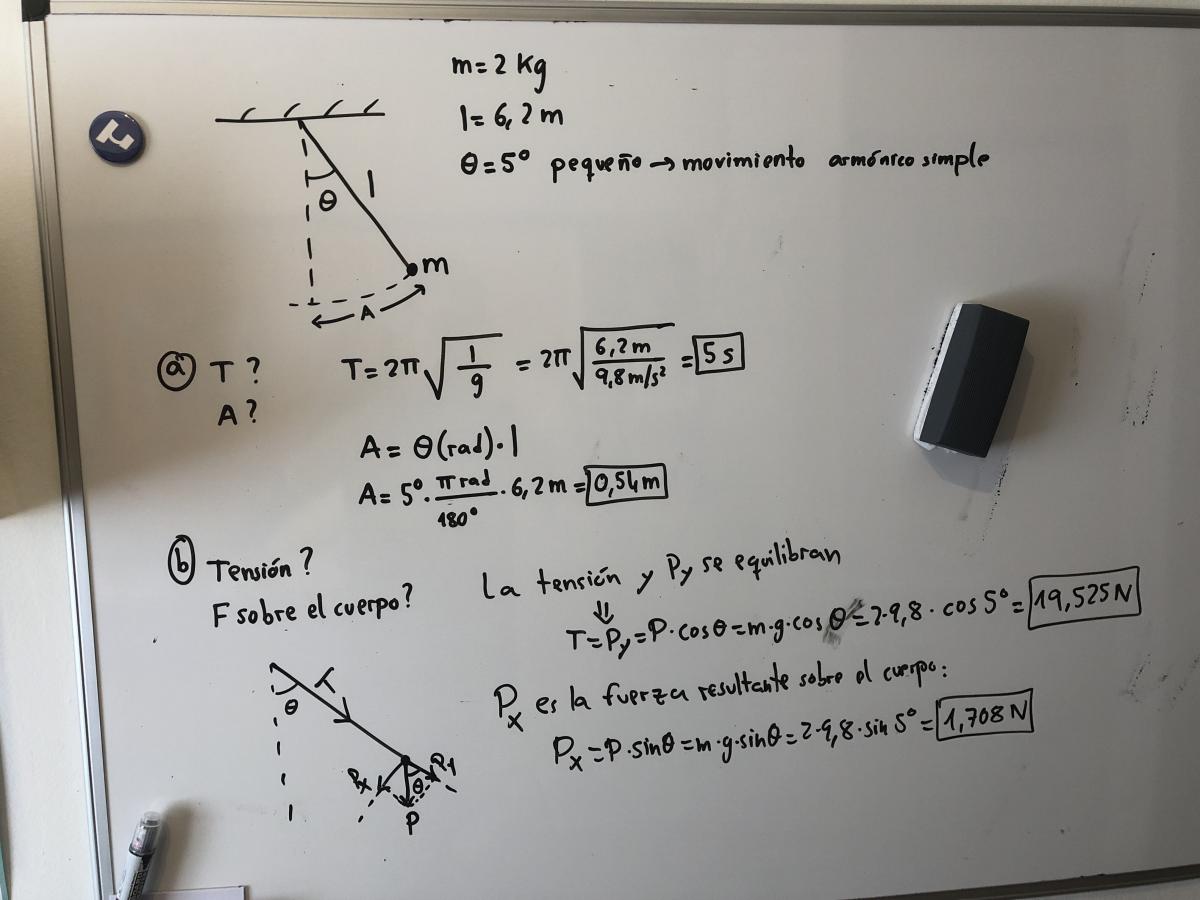 m = 2 Kg
l = 6,2 m
θ = 5° pequeño → movimiento armónico simple
θ
l
m
A
ⓐ T ?
A ?
T = 2π √(l/g) = 2π √(6,2 m / 9,8 m/s²) = 5 s
A = θ(rad) · l
A = 5° · π rad / 180° · 6,2 m = 0,54 m
ⓑ Tensión ?
F sobre el cuerpo?
La tensión y Py se equilibran
⇓
T = Py = P · cos θ = m · g · cos θ = 2 · 9,8 · cos 5° = 19,525 N
Px es la fuerza resultante sobre el cuerpo:
Px = P · sin θ = m · g · sin θ = 2 · 9,8 · sin 5° = 1,708 N
θ
T
Px
θ
Py
P